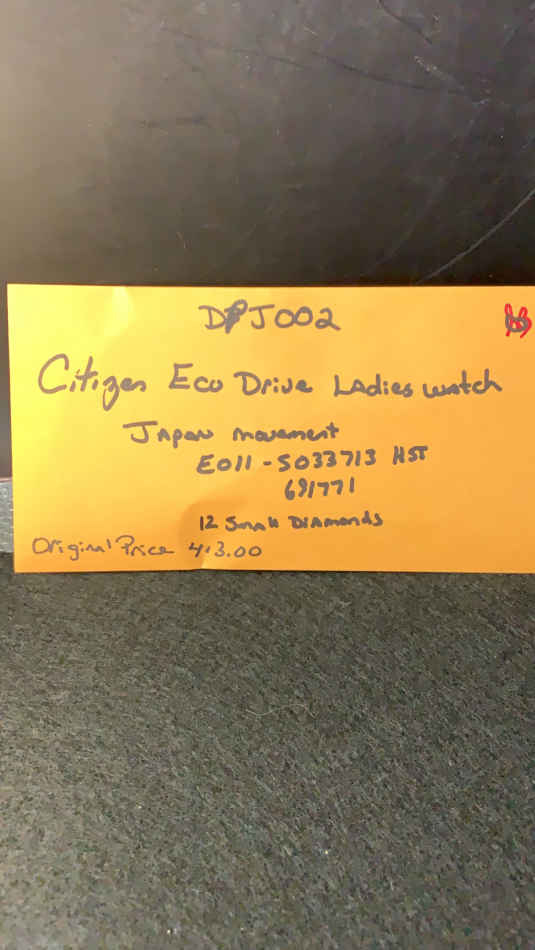 DPJ002
Citizen Eco Drive Ladies watch
Japan movement
E011-S033713 HST
691771
12 Small Diamonds
Original Price 413.00